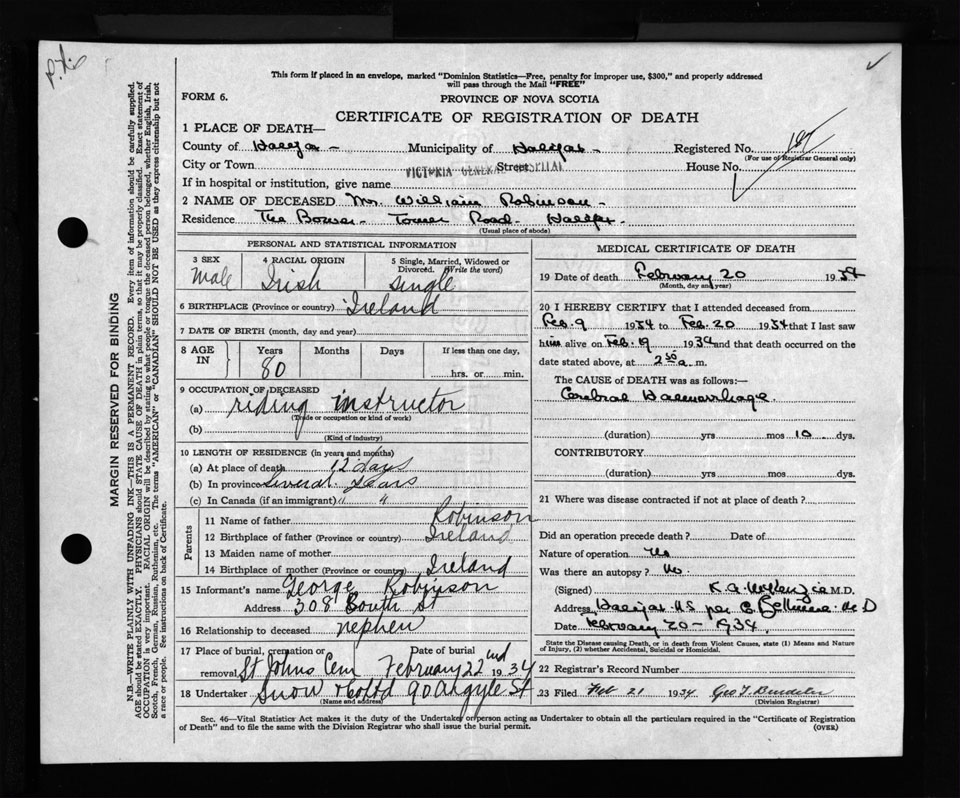 This form if placed in an envelope, marked "Dominion Statistics—Free, penalty for improper use, $300," and properly addressed
will pass through the Mail "FREE"
FORM 6.
PROVINCE OF NOVA SCOTIA
CERTIFICATE OF REGISTRATION OF DEATH
MARGIN RESERVED FOR BINDING
N.B.—WRITE PLAINLY WITH UNFADING INK—THIS IS A PERMANENT RECORD. Every item of information should be carefully supplied.
AGE should be stated EXACTLY. PHYSICIANS should STATE CAUSE OF DEATH in plain terms, so that it may be properly classified. Exact statement of
OCCUPATION is very important. RACIAL ORIGIN will be described by stating to what people or tongue the deceased person belonged, whether English, Irish,
Scotch, French, German, Russian, Ruthenian, etc. The terms "AMERICAN" or "CANADIAN" SHOULD NOT BE USED as they express citizenship but not
a race or people. See instructions on back of Certificate.
1 PLACE OF DEATH—
County of Halifax Municipality of Halifax Registered No. 187
(For use of Registrar General only)
City or Town Street House No.
VICTORIA GENERAL HOSPITAL
If in hospital or institution, give name
2 NAME OF DECEASED Mr. William Robinson
Residence The Tower Road. Halifax
(Usual place of abode)
PERSONAL AND STATISTICAL INFORMATION
3 SEX 4 RACIAL ORIGIN 5 Single, Married, Widowed or Divorced. (Write the word)
Male Irish Single
6 BIRTHPLACE (Province or country) Ireland
7 DATE OF BIRTH (month, day and year)
8 AGE IN Years Months Days If less than one day,
80 hrs. or min.
9 OCCUPATION OF DECEASED
(a) riding instructor
(Trade or occupation or kind of work)
(b)
(Kind of industry)
10 LENGTH OF RESIDENCE (in years and months)
(a) At place of death 12 days
(b) In province Several Years
(c) In Canada (if an immigrant) " "
Parents
11 Name of father Robinson
12 Birthplace of father (Province or country) Ireland
13 Maiden name of mother
14 Birthplace of mother (Province or country) Ireland
15 Informant's name George Robinson
Address 308 South St
16 Relationship to deceased nephew
17 Place of burial, cremation or removal Date of burial
St Johns Cem February 22nd 1934
18 Undertaker Snow & Co Ltd 90 Argyle St
(Name and address)
MEDICAL CERTIFICATE OF DEATH
19 Date of death February 20 1934
(Month, day and year)
20 I HEREBY CERTIFY that I attended deceased from
Feb. 9 1934 to Feb. 20 1934 that I last saw
him alive on Feb. 19 1934 and that death occurred on the
date stated above, at 2 50 a. m.
The CAUSE OF DEATH was as follows:—
Cerebral Haemorrhage
(duration) yrs mos 10 dys.
CONTRIBUTORY
(duration) yrs mos dys.
21 Where was disease contracted if not at place of death?
Did an operation precede death? Date of
Nature of operation No
Was there an autopsy? No.
(Signed) K.A. McKenzie M.D.
Address Halifax N.S per M D
Date February 20 - 1934.
State the Disease causing Death, or in death from Violent Causes, state (1) Means and Nature of Injury, (2) whether Accidental, Suicidal or Homicidal.
22 Registrar's Record Number
23 Filed Feb 21 1934 Geo
(Division Registrar)
Sec. 46—Vital Statistics Act makes it the duty of the Undertaker or person acting as Undertaker to obtain all the particulars required in the "Certificate of Registration
of Death" and to file the same with the Division Registrar who shall issue the burial permit.
(OVER)